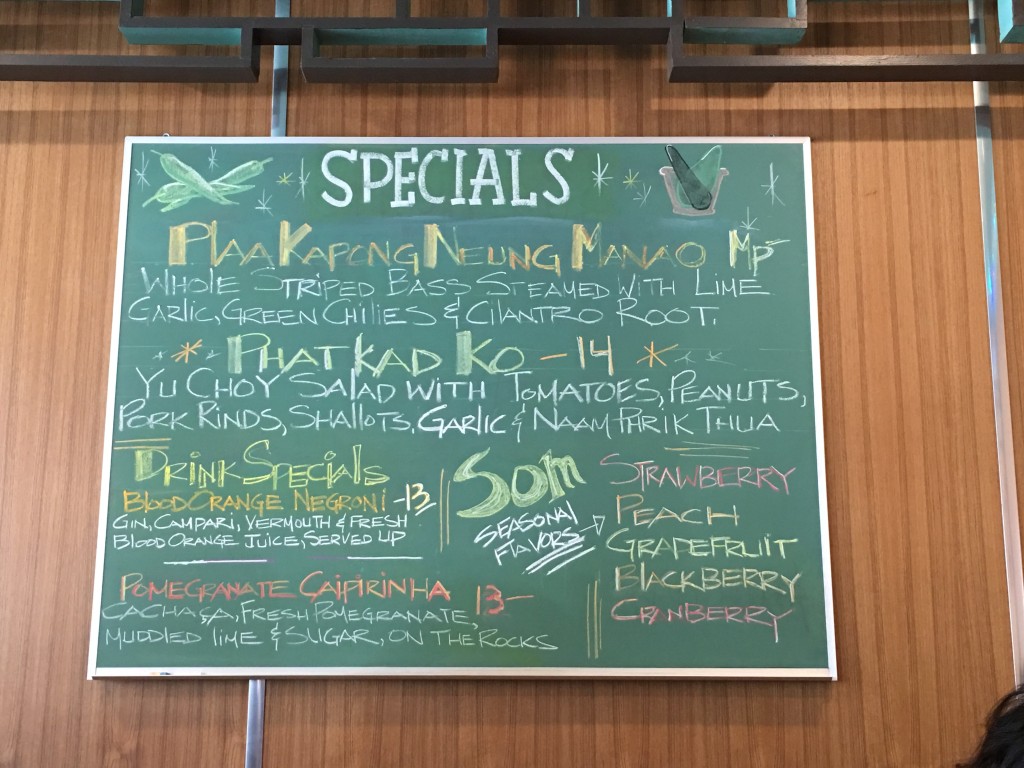 SPECIALS
PLAA KAPONG NEUNG MANAO MP
WHOLE STRIPED BASS STEAMED WITH LIME
GARLIC, GREEN CHILIES & CILANTRO ROOT.
PHAT KAD KO - 14
YU CHOY SALAD WITH TOMATOES, PEANUTS,
PORK RINDS, SHALLOTS, GARLIC & NAAM PHRIK THUA
DRINK SPECIALS
BLOOD ORANGE NEGRONI - 13
GIN, CAMPARI, VERMOUTH & FRESH
BLOOD ORANGE JUICE, SERVED UP
POMEGRANATE CAIPIRINHA 13-
CACHAÇA, FRESH POMEGRANATE,
MUDDLED LIME & SUGAR, ON THE ROCKS
SOM
SEASONAL
FLAVORS
STRAWBERRY
PEACH
GRAPEFRUIT
BLACKBERRY
CRANBERRY